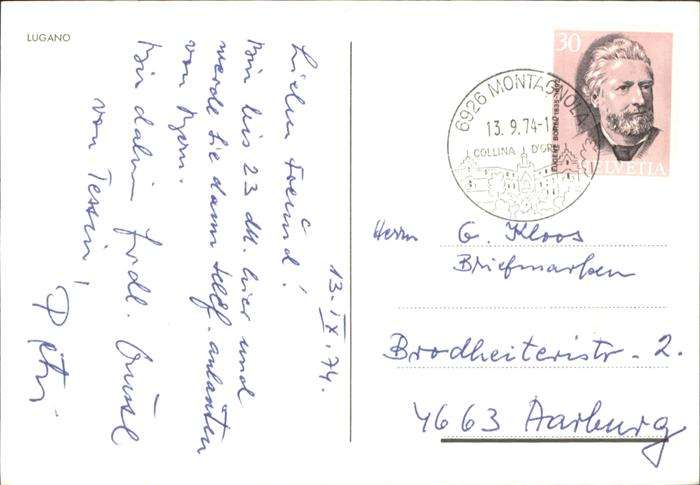 LUGANO
13.IX.74.
Lieber Freund!
Bin bis 23 dM. hier und
werde Sie dann telef. anläuten
von Bern.
Bis dahin frdl. Grüsse
von Tessin!
Peter.
30
HELVETIA
6926 MONTAGNOLA
13.9.74-1
COLLINA D'OR
Herrn G. Kloos
Briefmarken
Brodheiteristr. 2.
4663 Aarburg